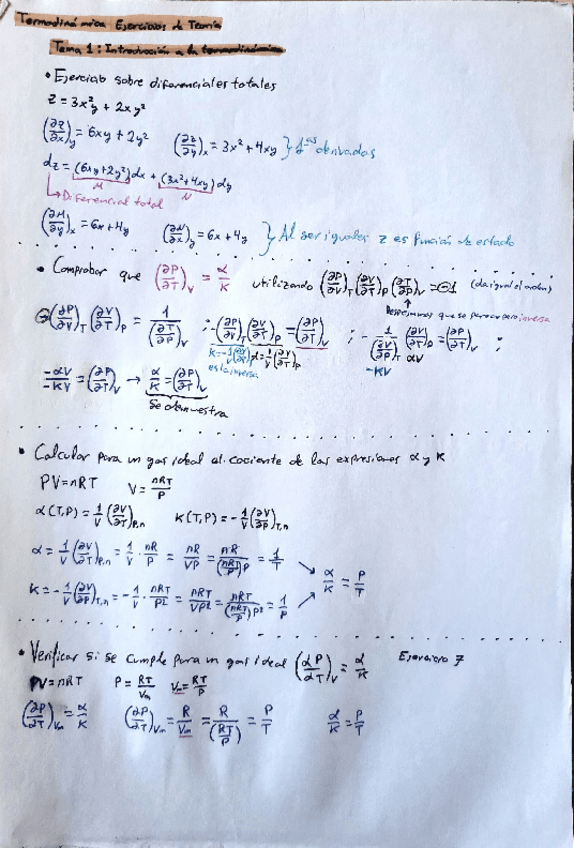 Termodinámica Ejercicios de Teoría
Tema 1: Introducción a la termodinámica
• Ejercicio sobre diferenciales totales
z = 3x²y + 2xy²
(∂z/∂x)_y = 6xy + 2y² (∂z/∂y)_x = 3x² + 4xy } 1ªs derivadas
dz = (6xy + 2y²)dx + (3x² + 4xy)dy
M N
↳ Diferencial total
(∂M/∂y)_x = 6x + 4y (∂N/∂x)_y = 6x + 4y } Al ser iguales z es función de estado
• Comprobar que (∂P/∂T)_V = α/κ utilizando (∂P/∂V)_T (∂V/∂T)_P (∂T/∂P)_V = -1 (da igual el orden)
Despejamos que se pararpero inversa
-(∂P/∂V)_T (∂V/∂T)_P = 1/(∂T/∂P)_V ; -(∂P/∂V)_T (∂V/∂T)_P = (∂P/∂T)_V ; -1/(∂V/∂P)_T (∂V/∂T)_P = (∂P/∂T)_V ;
κ = -1/V (∂V/∂P)_T α = 1/V (∂V/∂T)_P -κV αV
es la inversa
-αV/-κV = (∂P/∂T)_V → α/κ = (∂P/∂T)_V
Se demuestra
• Calcular para un gas ideal el cociente de las expresiones α y κ
PV = nRT V = nRT/P
α(T,P) = 1/V (∂V/∂T)_P,n κ(T,P) = -1/V (∂V/∂P)_T,n
α = 1/V (∂V/∂T)_P,n = 1/V · nR/P = nR/VP = nR/((nRT/P)P) = 1/T
α/κ = P/T
κ = -1/V (∂V/∂P)_T,n = -1/V · nRT/P² = nRT/VP² = nRT/((nRT/P)P²) = 1/P
• Verificar si se cumple para un gas ideal (∂P/∂T)_V = α/κ Ejercicio 7
PV = nRT P = RT/Vm Vm = RT/P
(∂P/∂T)_Vm = α/κ (∂P/∂T)_Vm = R/Vm = R/(RT/P) = P/T α/κ = P/T